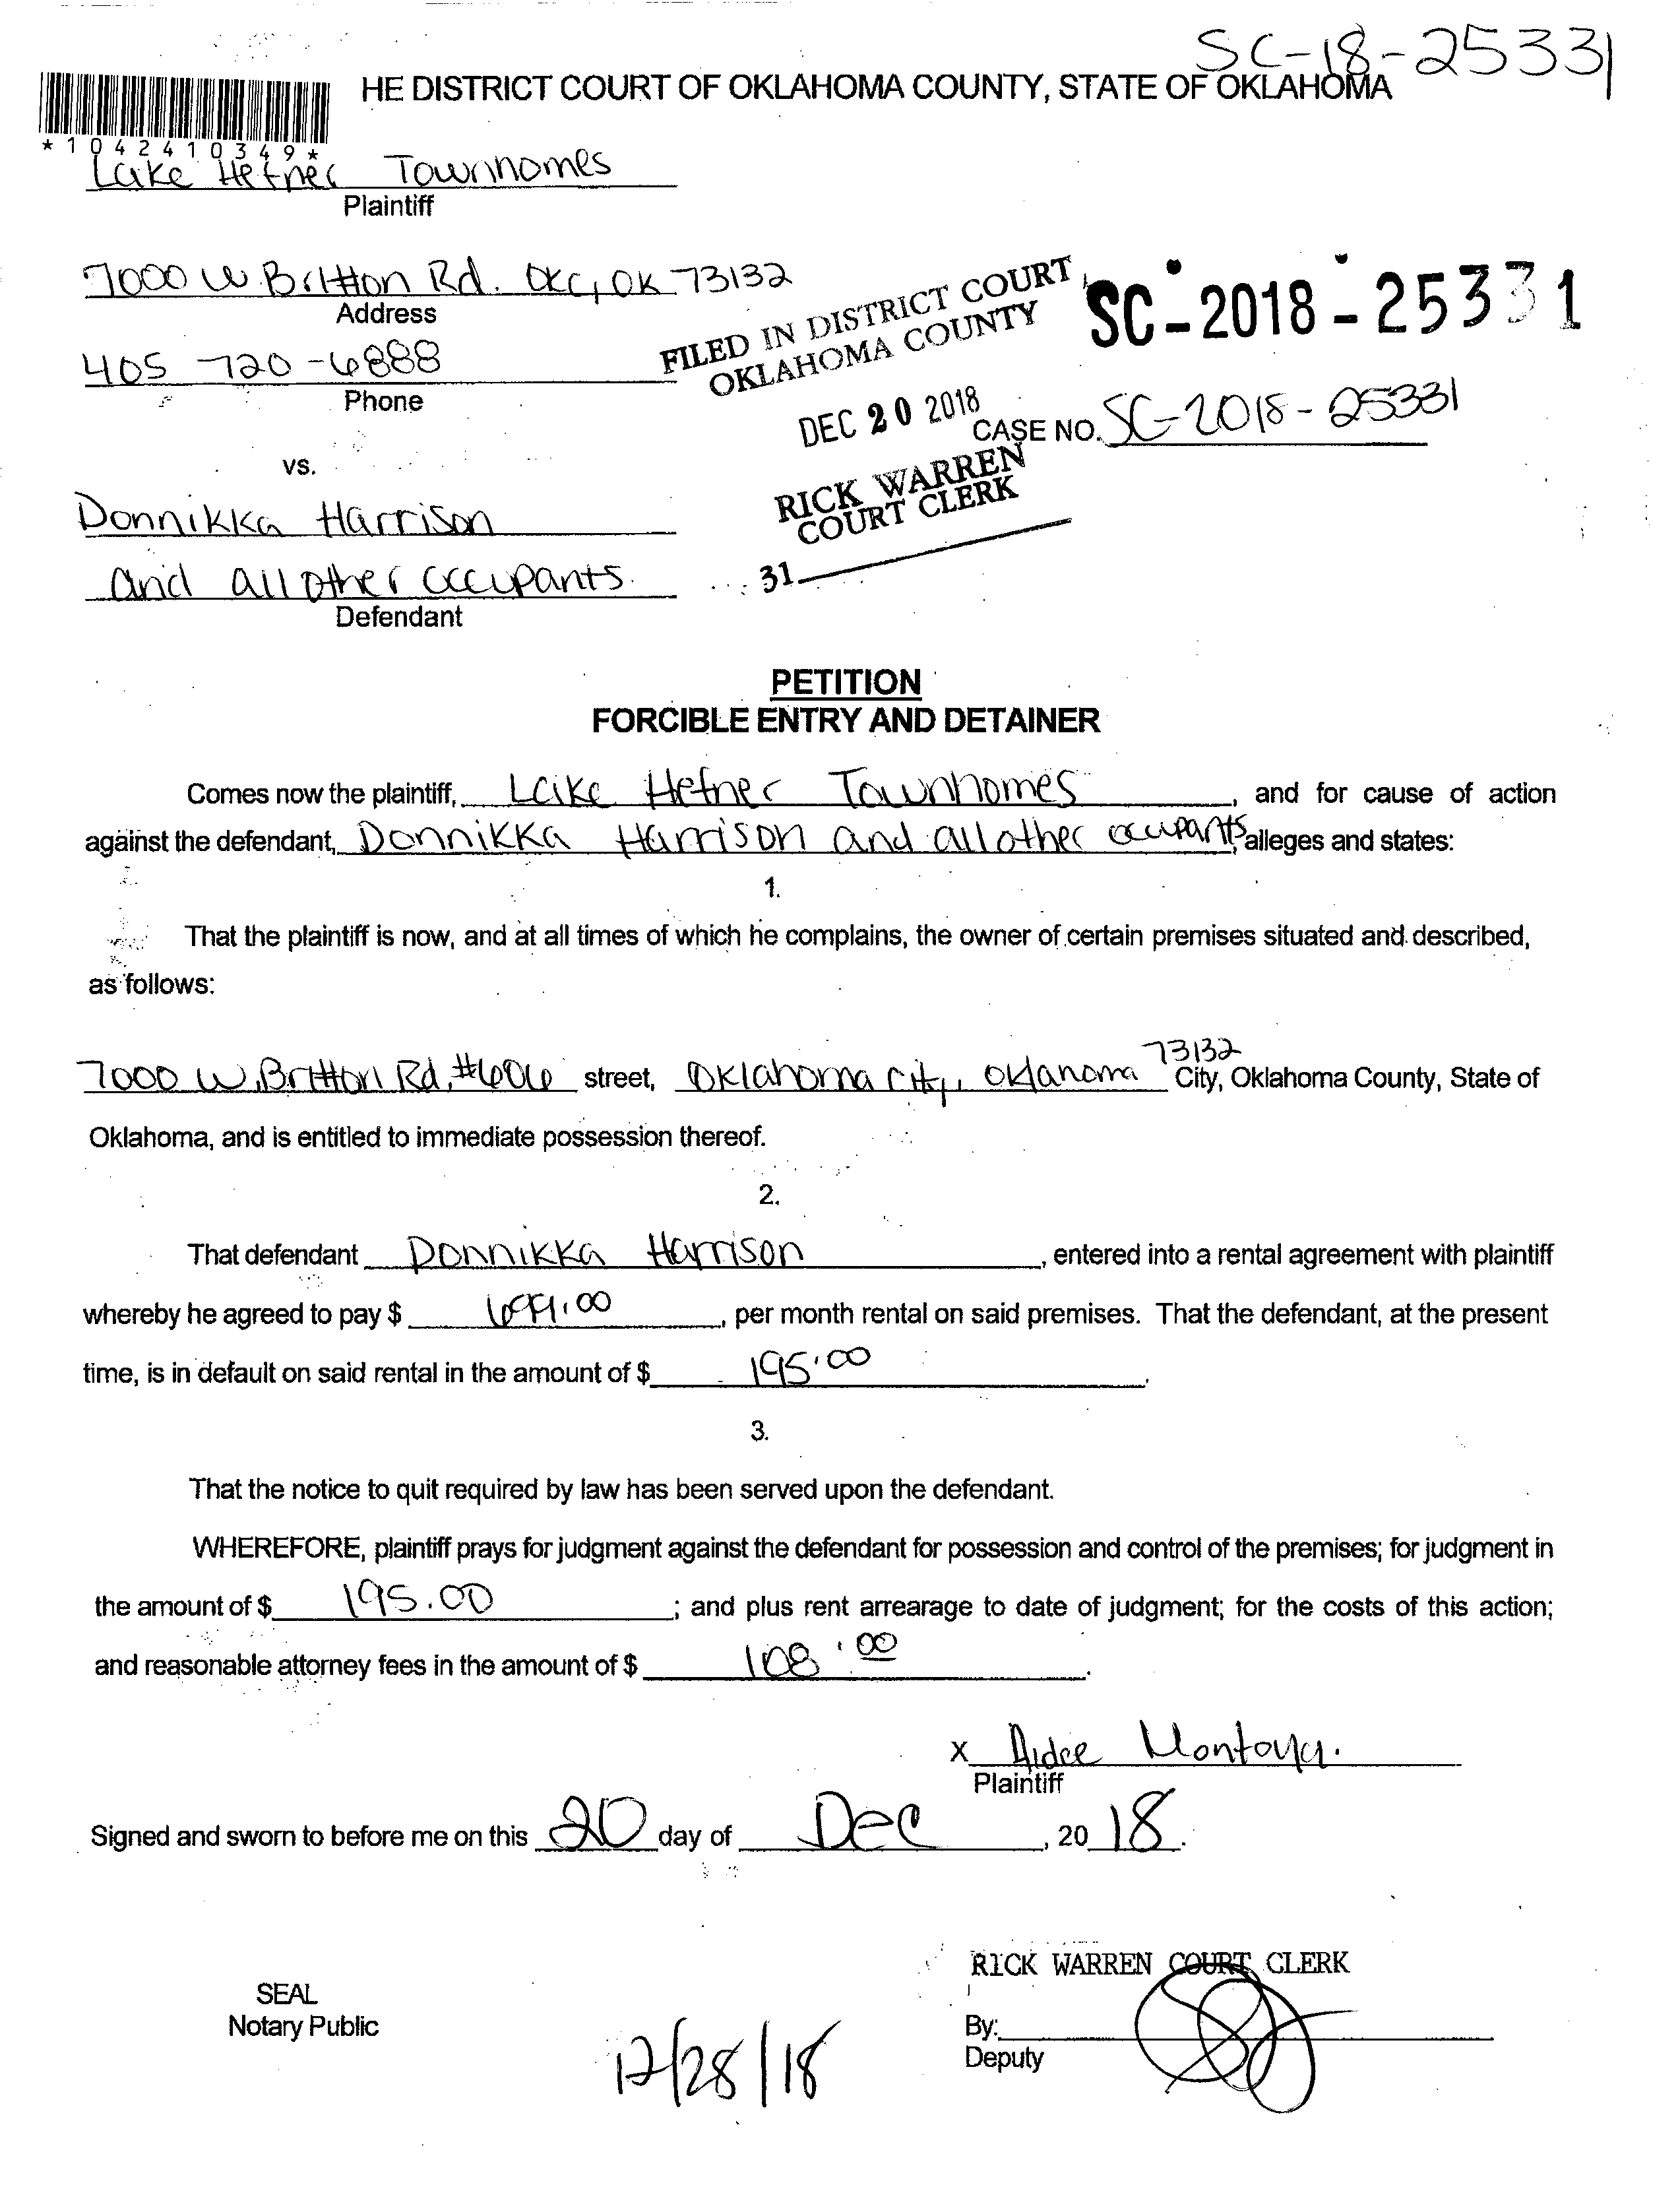 SC-18-25331
HE DISTRICT COURT OF OKLAHOMA COUNTY, STATE OF OKLAHOMA
*1042410349*
Lake Hefner Townhomes
Plaintiff
7000 W. Britton Rd. OKC, OK 73132
Address
FILED IN DISTRICT COURT
OKLAHOMA COUNTY
SC-2018-25331
405-720-6888
Phone
DEC 20 2018
CASE NO. SC-2018-25331
vs.
RICK WARREN
COURT CLERK
Donnikka Harrison
31
and all other occupants.
Defendant
PETITION
FORCIBLE ENTRY AND DETAINER
Comes now the plaintiff, Lake Hefner Townhomes, and for cause of action
against the defendant, Donnikka Harrison and all other occupants, alleges and states:
1.
That the plaintiff is now, and at all times of which he complains, the owner of certain premises situated and described,
as follows:
73132
7000 W. Britton Rd, #606 street, Oklahoma City, Oklahoma City, Oklahoma County, State of
Oklahoma, and is entitled to immediate possession thereof.
2.
That defendant Donnikka Harrison, entered into a rental agreement with plaintiff
whereby he agreed to pay $ 699.00, per month rental on said premises. That the defendant, at the present
time, is in default on said rental in the amount of $ 195.00.
3.
That the notice to quit required by law has been served upon the defendant.
WHEREFORE, plaintiff prays for judgment against the defendant for possession and control of the premises; for judgment in
the amount of $ 195.00; and plus rent arrearage to date of judgment; for the costs of this action;
and reasonable attorney fees in the amount of $ 108.00.
x Aidee Montoya.
Plaintiff
Signed and sworn to before me on this 20 day of Dec, 20 18.
RICK WARREN COURT CLERK
SEAL
Notary Public
By:
Deputy
12/28/18